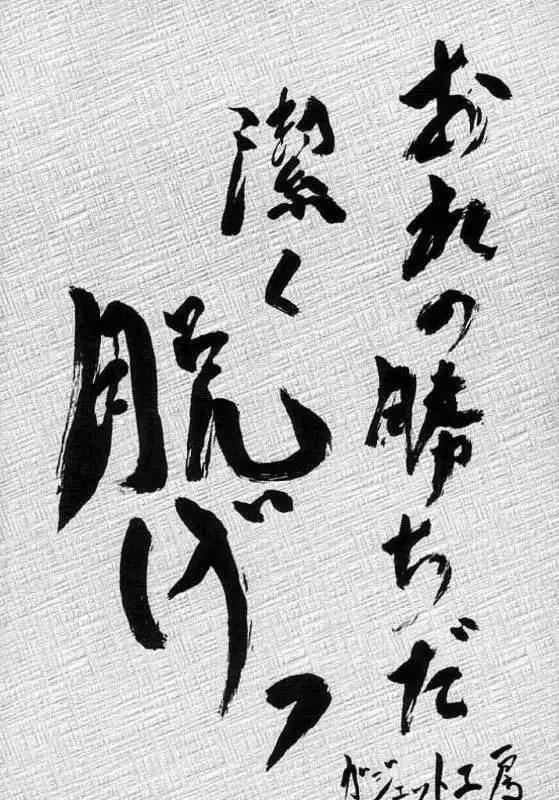 おれの勝ちだ
潔く
脱げっ
ガジェット工房